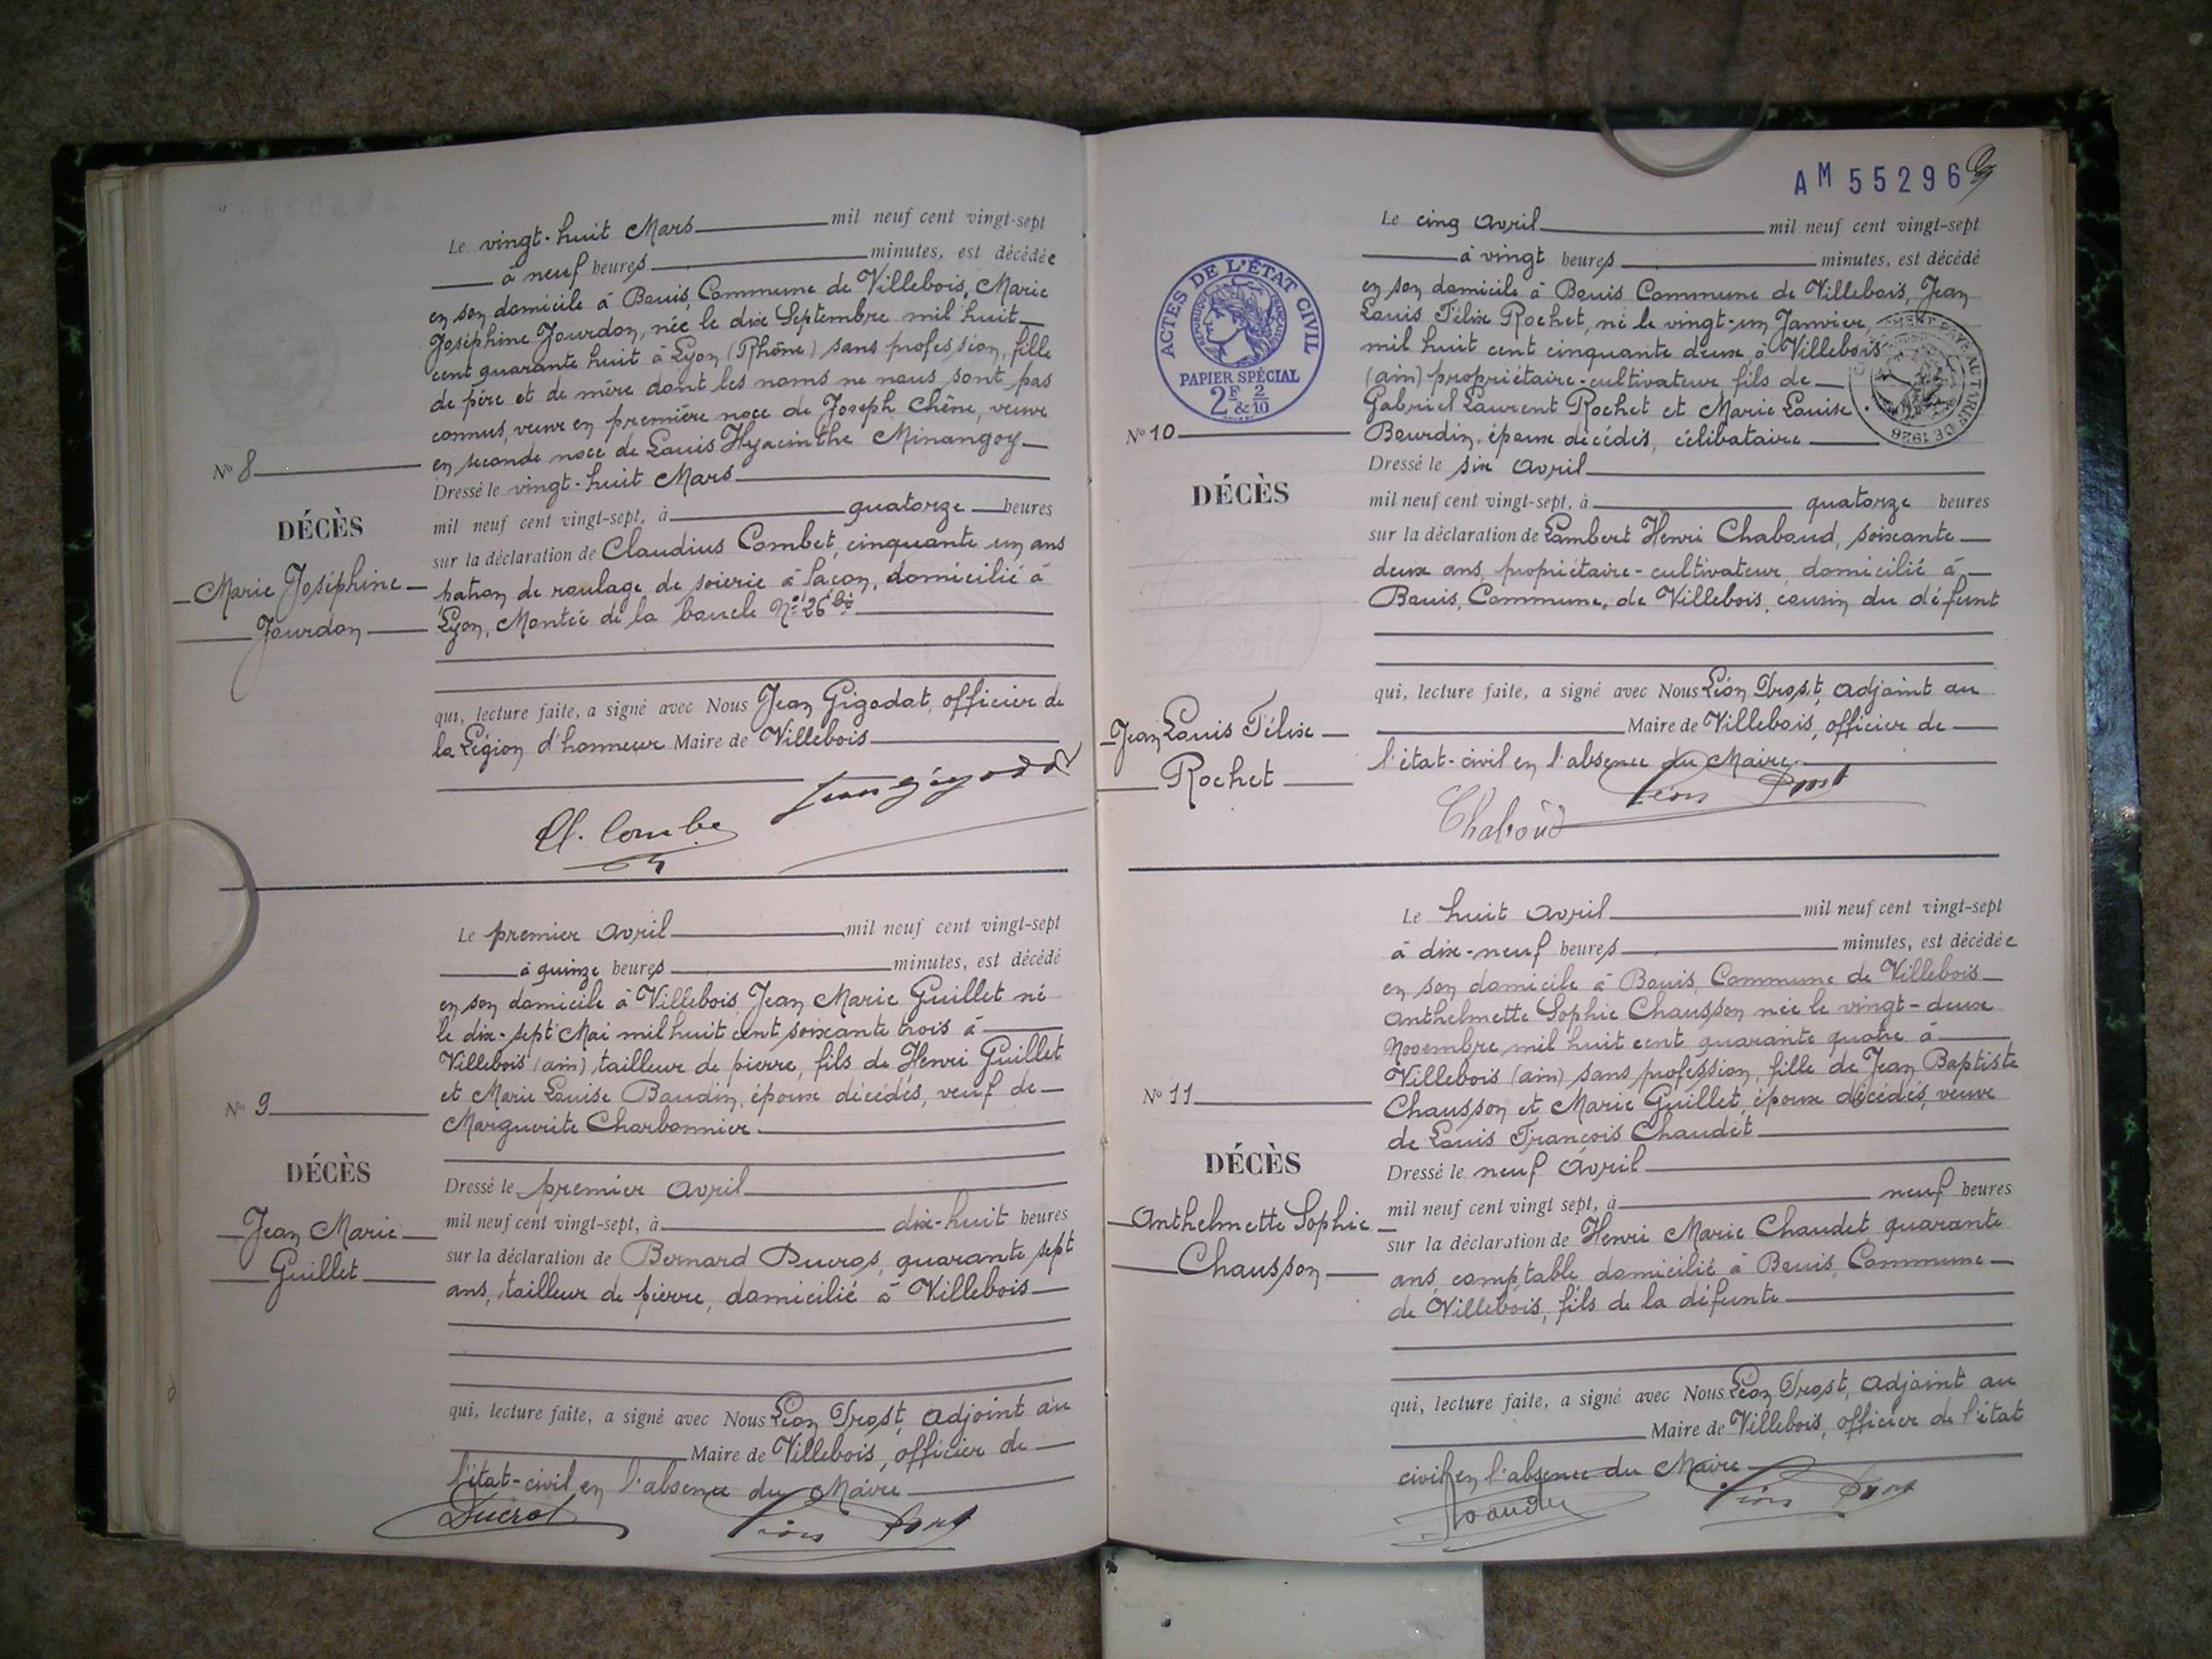 Le vingt-huit Mars mil neuf cent vingt-sept
à neuf heures minutes, est décédée
en son domicile à Bouis, Commune de Villebois, Marie
Joséphine Jourdon, née le dix Septembre mil huit
cent quarante huit à Lyon (Rhône) sans profession, fille
de père et de mère dont les noms ne nous sont pas
connus, veuve en première noce de Joseph Chêne, veuve
en seconde noce de Louis Hyacinthe Minangoy
Nº 8
Dressé le vingt-huit Mars
DÉCÈS
mil neuf cent vingt-sept, à quatorze heures
sur la déclaration de Claudius Combet, cinquante un ans
Marie Joséphine
Jourdon
patron de roulage de soierie à façon, domicilié à
Lyon, Montée de la boucle Nº 26 bis
qui, lecture faite, a signé avec Nous Jean Gigodat, officier de
la Légion d'honneur Maire de Villebois
Jean Gigodat
Cl. Combe
Le premier Avril mil neuf cent vingt-sept
à quinze heures minutes, est décédé
en son domicile à Villebois, Jean Marie Guillet né
le dix-sept Mai mil huit cent soixante trois à
Villebois (ain) tailleur de pierre, fils de Henri Guillet
et Marie Louise Baudin, époux décédés, veuf de
Marguerite Charbonnier
Nº 9
DÉCÈS
Jean Marie
Guillet
Dressé le premier Avril
mil neuf cent vingt-sept, à dix-huit heures
sur la déclaration de Bernard Ducros, quarante sept
ans, tailleur de pierre, domicilié à Villebois
qui, lecture faite, a signé avec Nous Léon Trost, Adjoint au
Maire de Villebois, officier de
l'état-civil en l'absence du Maire
Ducrot
Léon Trost
AM 55296
ACTES DE L'ÉTAT CIVIL
RÉPUBLIQUE FRANÇAISE
PAPIER SPÉCIAL
2F & 2/10
Le cinq Avril mil neuf cent vingt-sept
à vingt heures minutes, est décédé
en son domicile à Bouis Commune de Villebois, Jean
Louis Félix Rochet, né le vingt-un Janvier
mil huit cent cinquante deux, à Villebois
(ain) propriétaire-cultivateur fils de
Gabriel Laurent Rochet et Marie Louise
Bourdin, époux décédés, célibataire
Nº 10
DÉCÈS
Jean Louis Félix
Rochet
Dressé le six Avril
mil neuf cent vingt-sept, à quatorze heures
sur la déclaration de Lambert Henri Chaboud, soixante
deux ans, propriétaire-cultivateur, domicilié à
Bouis, Commune, de Villebois, cousin du défunt
qui, lecture faite, a signé avec Nous Léon Trost, Adjoint au
Maire de Villebois, officier de
l'état-civil en l'absence du Maire
Léon Trost
Chaboud
Le huit Avril mil neuf cent vingt-sept
à dix-neuf heures minutes, est décédée
en son domicile à Bouis, Commune de Villebois
Anthelmette Sophie Chausson née le vingt-deux
Novembre mil huit cent quarante quatre à
Villebois (ain) sans profession, fille de Jean Baptiste
Chausson et Marie Guillet, époux décédés, veuve
de Louis François Chaudet
Nº 11
DÉCÈS
Anthelmette Sophie
Chausson
Dressé le neuf Avril
mil neuf cent vingt sept, à neuf heures
sur la déclaration de Henri Marie Chaudet, quarante
ans, comptable domicilié à Bouis, Commune
de Villebois, fils de la défunte
qui, lecture faite, a signé avec Nous Léon Trost, Adjoint au
Maire de Villebois, officier de l'état
civil en l'absence du Maire
Léon Trost